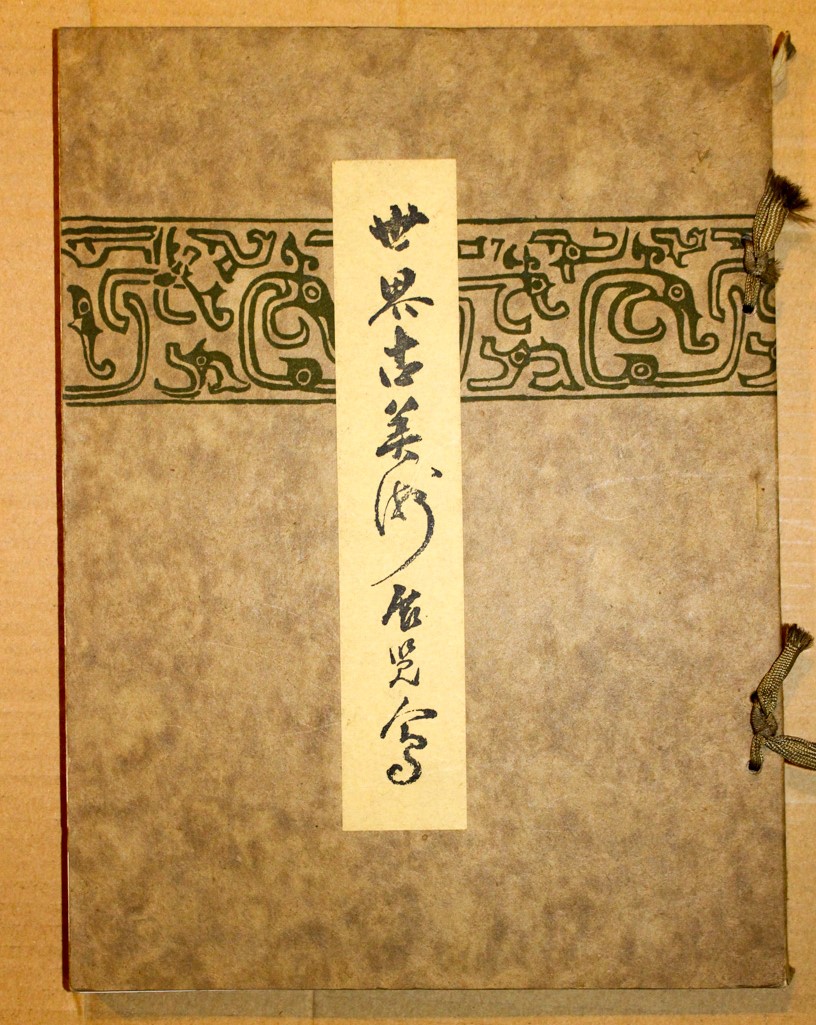 世界古美術展覧會